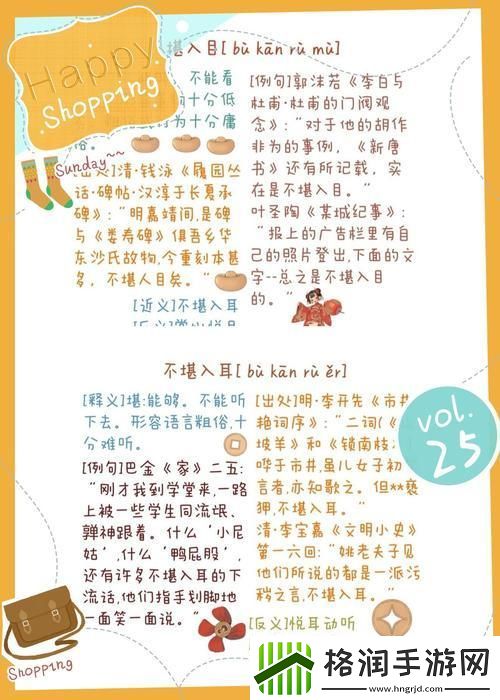 Happy
Shopping
Sunday~~
堪入目[bù kān rù mù]
不能看
十分低
为十分庸
俗。
[出处]清·钱泳《履园丛
话·碑帖·汉淳于长夏承
碑》：“明嘉靖间，是碑
与《娄寿碑》俱吾乡华
东沙氏故物，今重刻本甚
多，不堪人目矣。”
[近义]不堪入耳
[例句]郭沫若《李白与
杜甫·杜甫的门阀观
念》：“对于他的胡作
非为的事例，《新唐
书》还有所记载，实
在是不堪入目。”
叶圣陶《某城纪事》：
“报上的广告栏里有自
己的照片登出，下面的文
字--总之是不堪入目
的。”
不堪入耳[bù kān rù ěr]
[释义]堪：能够。不能听
下去。形容语言粗俗，十
分难听。
[例句]巴金《家》二五：
“刚才我到学堂来，一路
上被一些学生同流氓、
亸神跟着。什么‘小尼
姑’，什么‘鸭屁股’，
还有许多不堪入耳的下
流话，他们指手划脚地
一面笑一面说。”
[出处]明·李开先《市井
艳词序》：“二词(《
坡羊》和《锁南枝》
哗于市井，虽儿女子初
言者，亦知歌之。但**亵
狎，不堪入耳。”
清·李宝嘉《文明小史》
第一六回：“姚老夫子见
他们所说的都是一派污
秽之言，不堪入耳。”
[反义]悦耳动听
vol.
25
Shopping
格润手游网
www.hngrjd.com